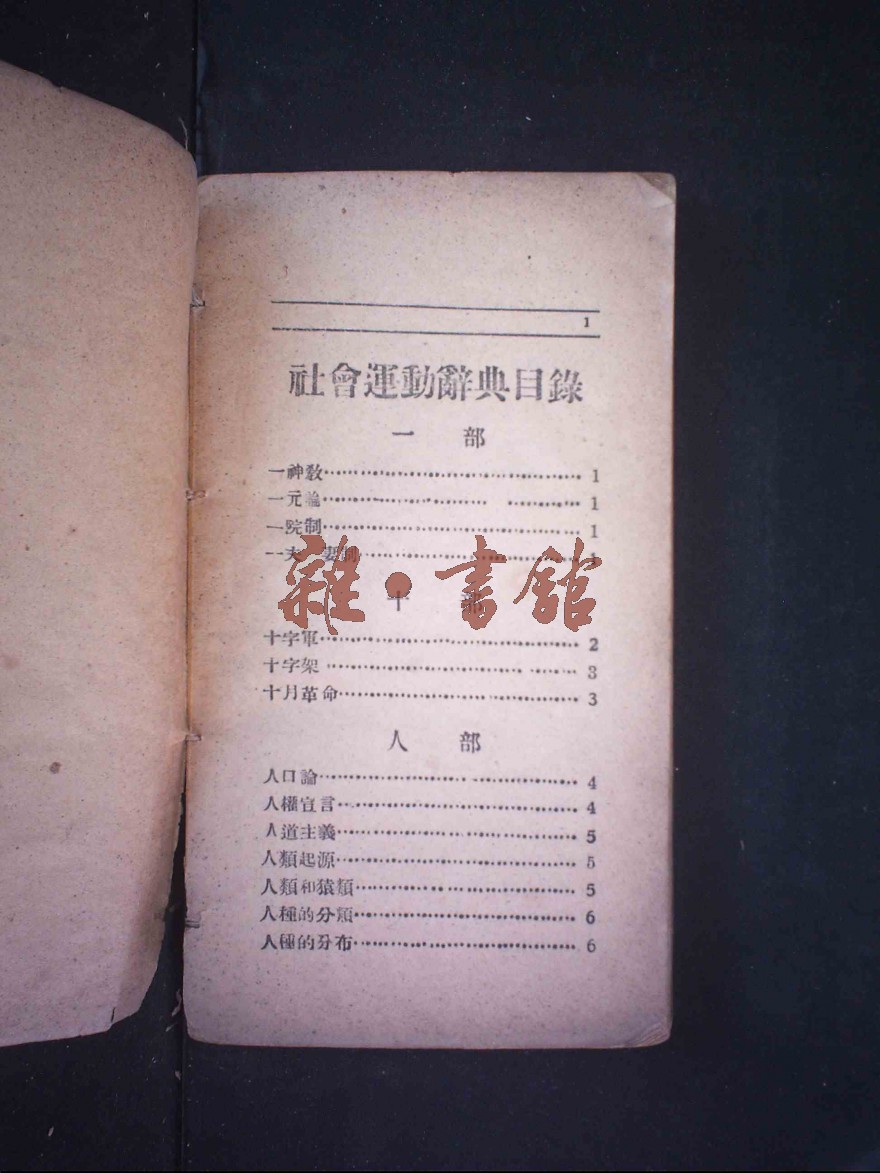 1
社會運動辭典目錄
一 部
一神教 1
一元論 1
一院制 1
一夫一妻制 1
雜·書館
十 部
十字軍 2
十字架 3
十月革命 3
人 部
人口論 4
人權宣言 4
人道主義 5
人類起源 5
人類和猿類 5
人種的分類 6
人種的分布 6